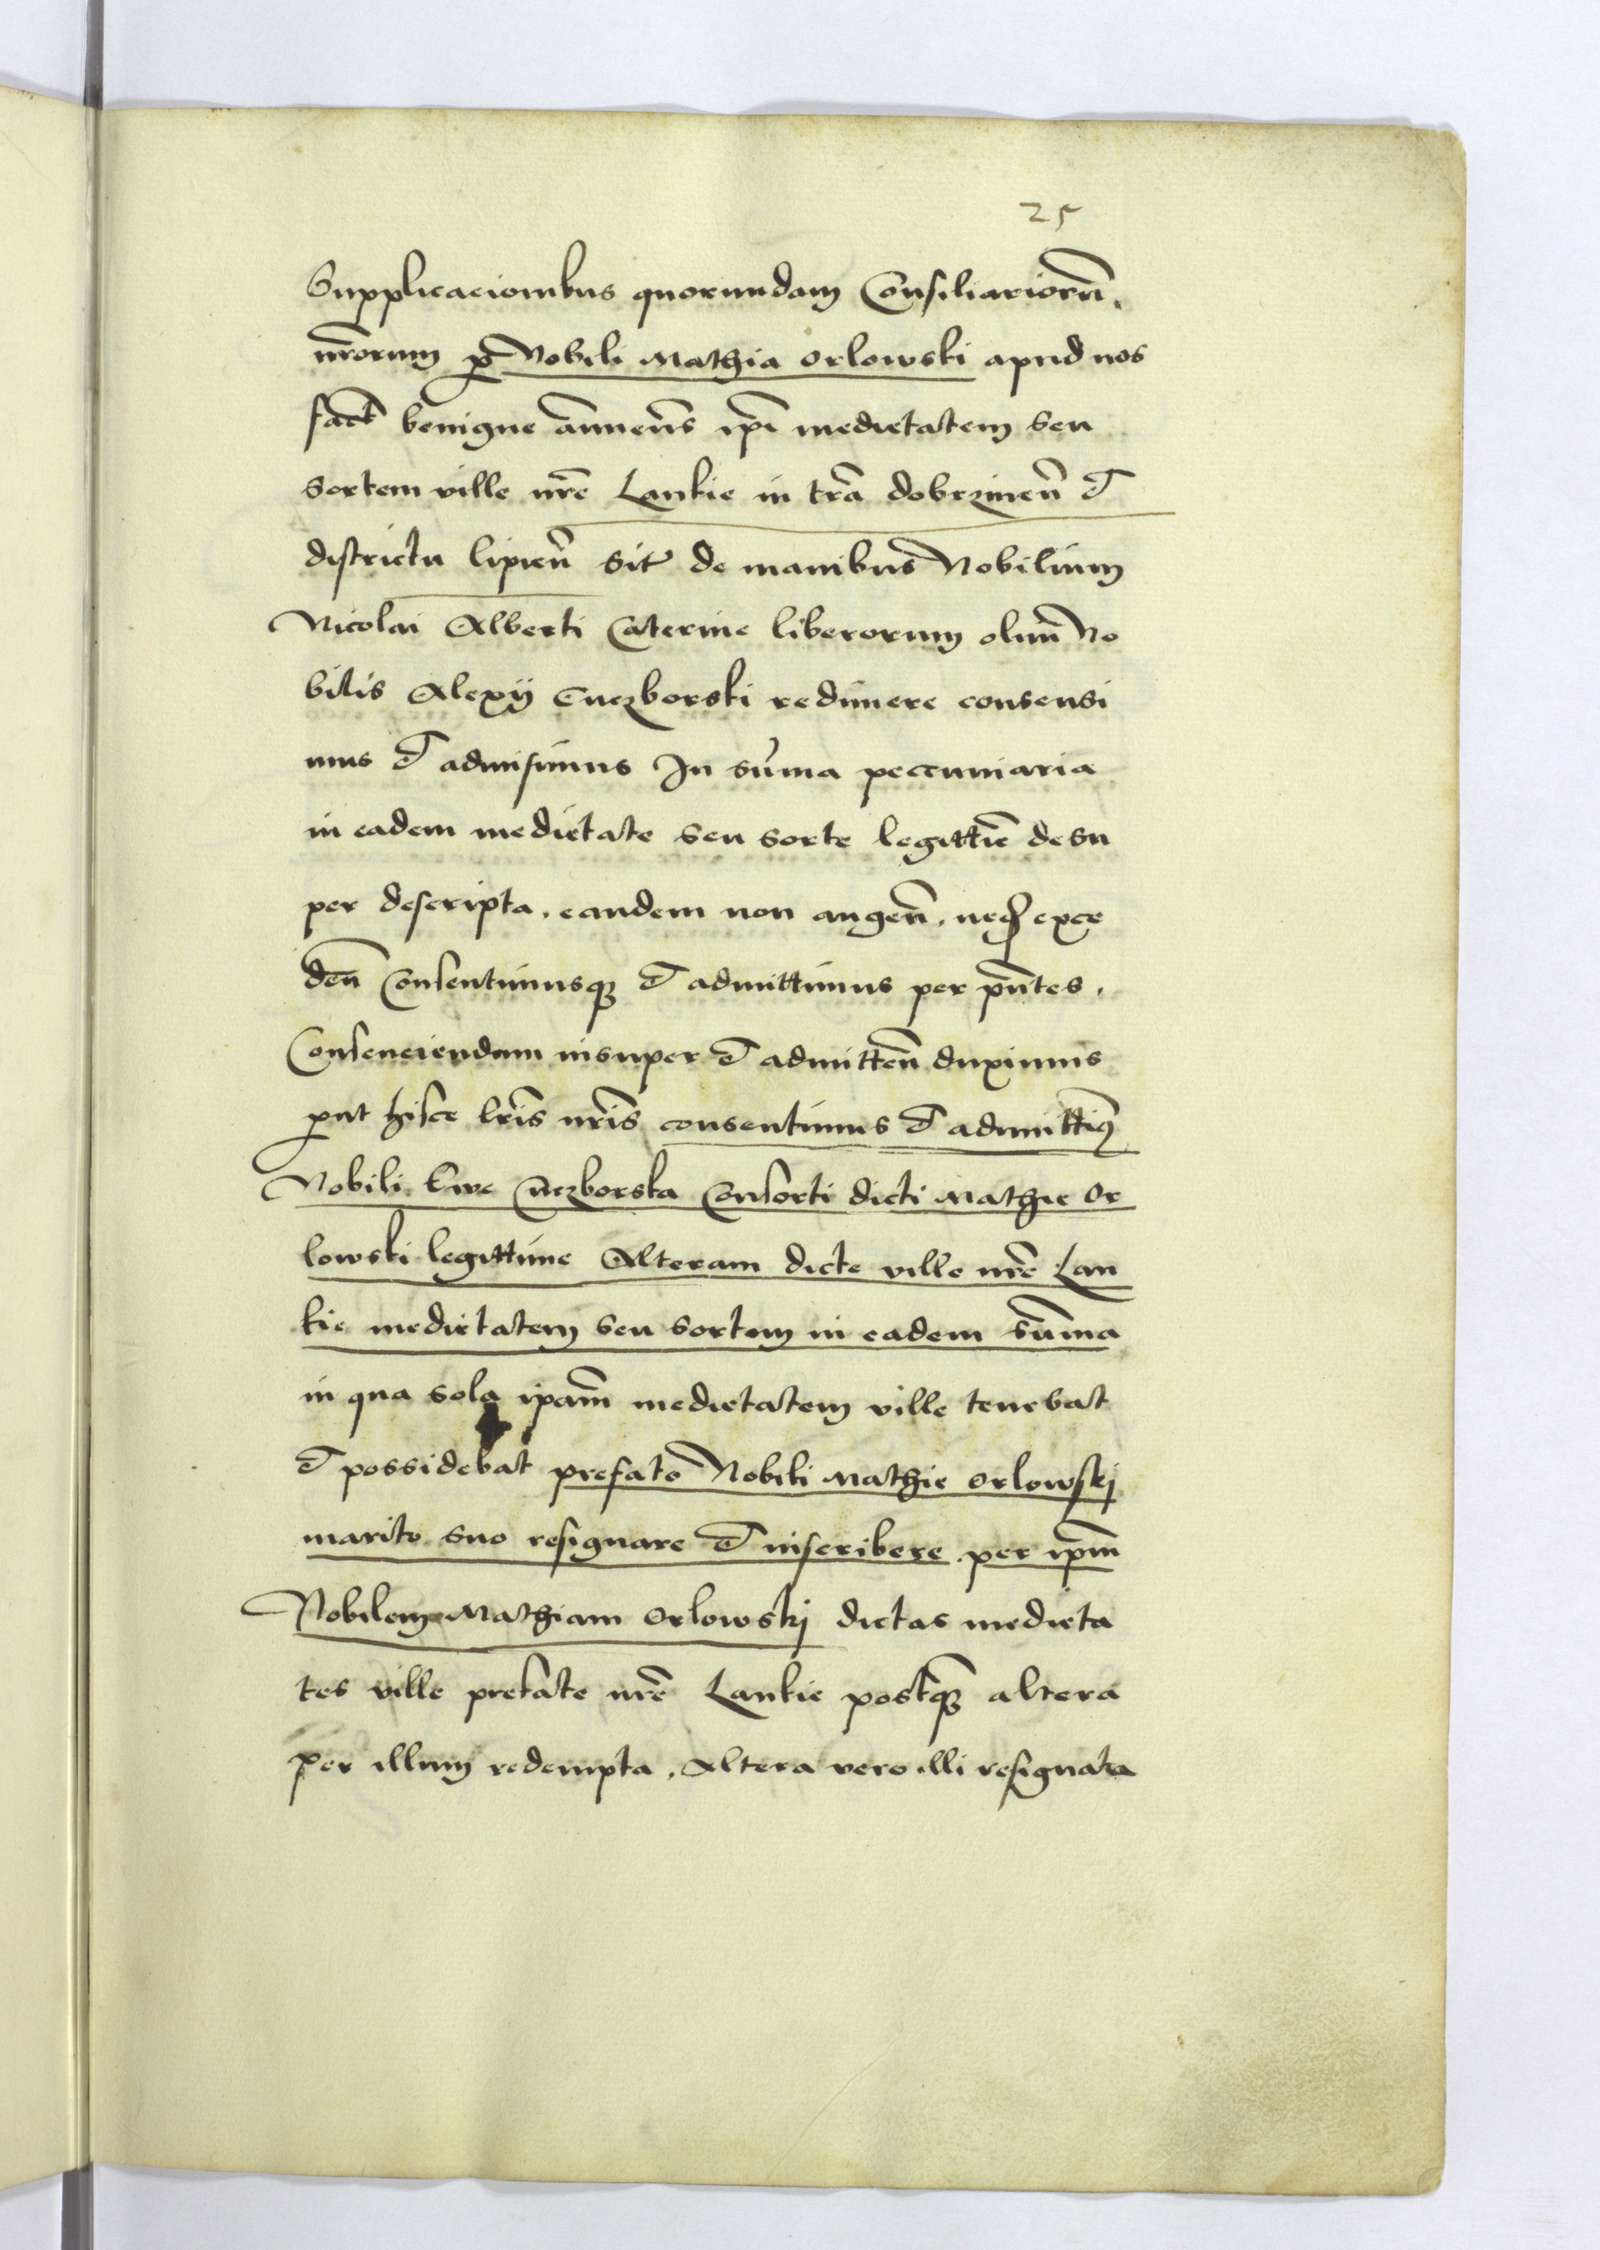 25
Supplicacionibus quorundam Consiliariorũ.
nr̃orum ꝑ Nobili Mathia Orlowski apud nos
fact̃ benigne annuen̄s ip̄i medietatem seu
sortem ville nr̃e Lankie in tr̃a dobrzinen̄ et
districtu lipien̄ sit̃ de manibus Nobilium
Nicolai Alberti Caterine liberorum olim No
bilis Alexÿ Cuczborski redimere consensi
mus et admisimus In sũma peccuniaria
in eadem medietate seu sorte legittiẽ desu
per descripta. eandem non augen̄. neqꝫ exce
den̄ Consentimusqꝫ et admittimus per pn̄tes.
Consenciendum insuper et admitten̄ duximus
ꝓut hisce lr̃is nr̃is consentimus et admittim9
Nobili Ewe Cuczborska Consorti dicti Mathie Or
lowski legittime Alteram dicte ville nr̃e Lan
kie medietatem seu sortem in eadem sũma
in qua sola ip̄am medietatem ville tenebat
et possidebat prefato Nobili Mathie Orlowskj
marito suo resignare et inscribere per ip̄m
Nobilem Mathiam Orlowskj dictas medieta
tes ville prefate nr̃e Lankie postqꝫ altera
per illum redempta. Altera vero illi resignata